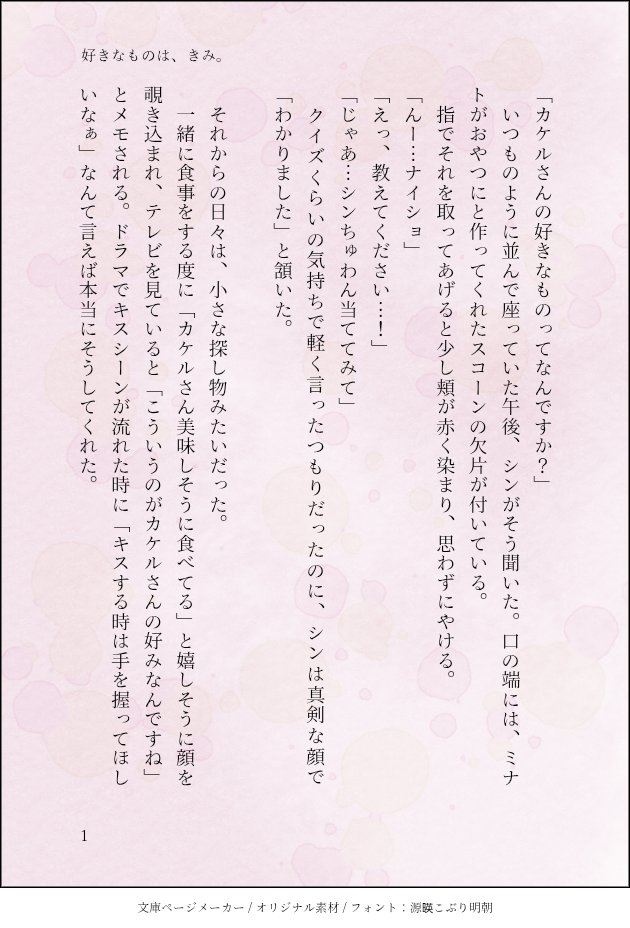 好きなものは、きみ。
「カケルさんの好きなものってなんですか？」
　いつものように並んで座っていた午後、シンがそう聞いた。口の端には、ミナ
トがおやつにと作ってくれたスコーンの欠片が付いている。
　指でそれを取ってあげると少し頬が赤く染まり、思わずにやける。
「んー…ナイショ」
「えっ、教えてください…！」
「じゃあ…シンちゅわん当ててみて」
　クイズくらいの気持ちで軽く言ったつもりだったのに、シンは真剣な顔で
「わかりました」と頷いた。
　それからの日々は、小さな探し物みたいだった。
　一緒に食事をする度に「カケルさん美味しそうに食べてる」と嬉しそうに顔を
覗き込まれ、テレビを見ていると「こういうのがカケルさんの好みなんですね」
とメモされる。ドラマでキスシーンが流れた時に「キスする時は手を握ってほし
いなぁ」なんて言えば本当にそうしてくれた。
1
文庫ページメーカー / オリジナル素材 / フォント：源暎こぶり明朝